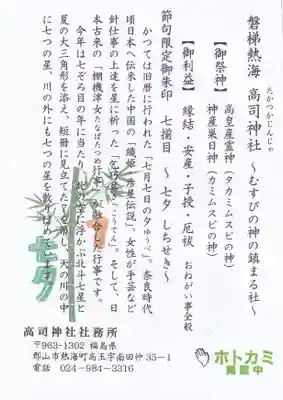 磐梯熱海 高司神社 ～むすびの神の鎮まる社～
たかつかじんじゃ
【御祭神】 高皇産霊神（タカミムスビの神）
神産巣日神（カミムスビの神）
【御利益】 縁結・安産・子授・厄祓 おねがい事全般
節句限定御朱印 七揃目 ～七夕 しちせき～
かつては旧暦に行われた「七月七日の夕ゆうべ」。奈良時代
頃日本へ伝来した中国の「織姫・彦星伝説」、女性が手芸など
針仕事の上達を星に祈った「乞巧奠きっこうでん」。そして、日
本古来の「棚機津女たなばたつめ行事」が融合した行事です。
今年は七ぞろ目の年に当たり、北の空に浮かぶ北斗七星と
夏の大三角形を添え、短冊に見立てた七を吊し、天の川の中
に七つの星、川の外にも七つの星を散りばめています。
七夕
高司神社社務所
〒963-1302 福島県
郡山市熱海町高玉字南田仲 35-1
電話 024-984-3316
ホトカミ
掲載中